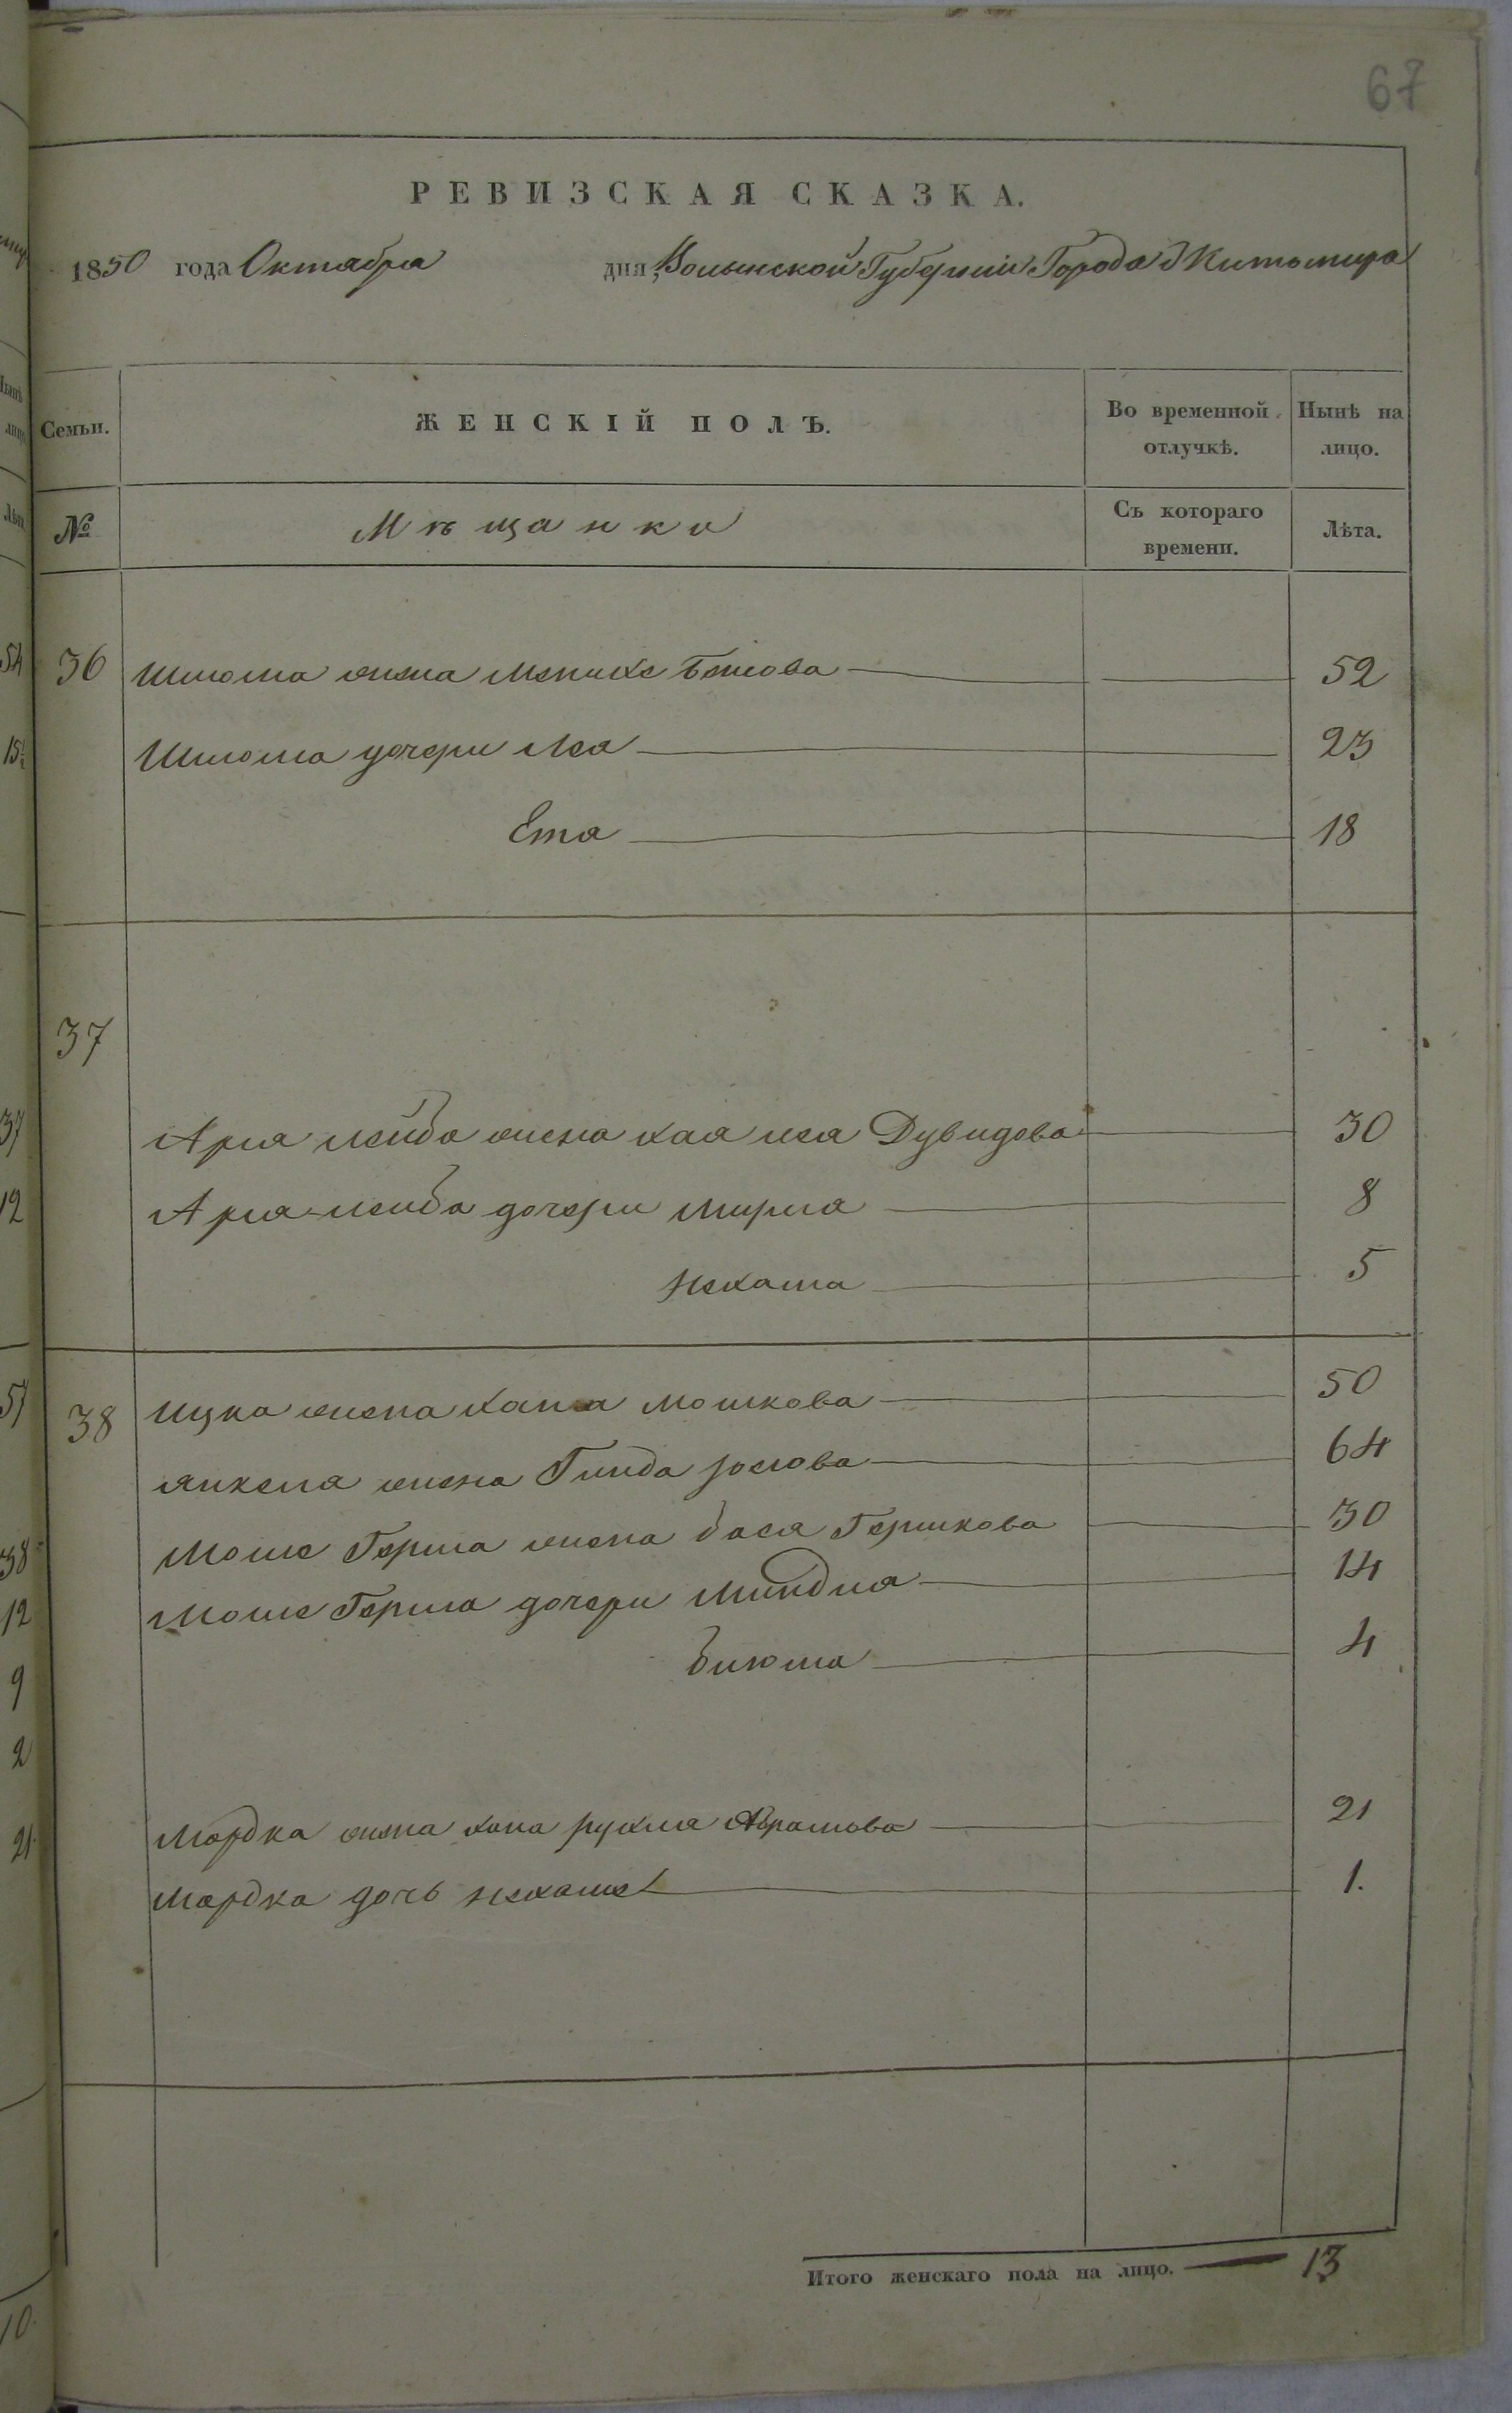 67
РЕВИЗСКАЯ СКАЗКА.
1850 года Октября дня, Волынской Губерніи Города Житомира
Семьи. ЖЕНСКІЙ ПОЛЪ. Во временной отлучкѣ. Нынѣ на лицо.
№ Мѣщанки Съ котораго времени. Лѣта.
36 Шлюма жена Менихе 52
Шлюма дочери Лея 23
Ета 18
37
Арья лейба жена хая лея Дувидова 30
Арья-лейба дочери Мирля 8
Нехама 5
38 Ицка жена Хана Мошкова 50
Янкеля жена Гинда 64
Моше Герша жена бася Гершкова 30
Моше Герша дочери Миндля 14
блюма 4
Мордка жена хана рухля Абрамова 21
Мордка дочь нехаме 1.
Итого женскаго пола на лицо. 13
54
15
37
12
57
38
12
9
2
21
10